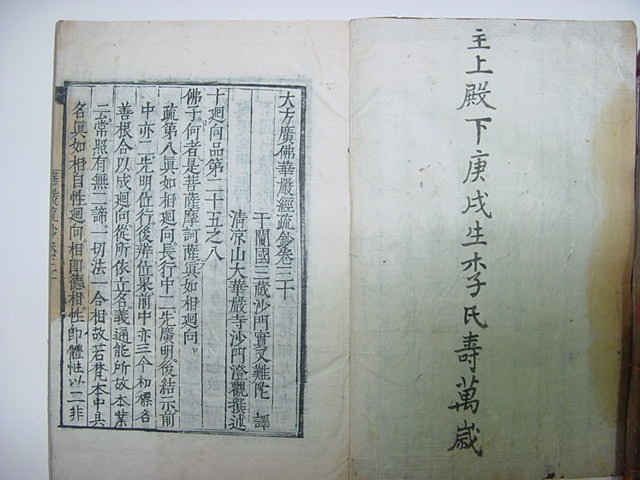 主上殿下庚戌生李氏壽萬歲
大方廣佛華嚴經疏鈔卷三十
于闐國三藏沙門實叉難陀 譯
清涼山大華嚴寺沙門澄觀撰述
十廻向品第二十五之八
佛子何者是菩薩摩訶薩眞如相廻向。
疏第八眞如相廻向長行中二先廣明後結示前
中亦二先明位行後辨位果前中亦三今初標名
善根合以成廻向從所依立名義通能所故本業
云常照有無二諦一切法一合相故若梵本中具
名眞如相自性廻向相即德相性即體性以二非